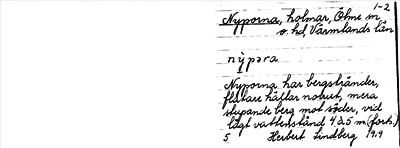 1-2
Nyporna, holmar, Ölme sn
o. hd, Värmlands län
nỳpəra
Nyporna har bergstränder,
flatare hällar norrut, mera
stupande berg mot söder, vid
lågt vattenstånd 4 à 5 m (fork.)
5 Herbert Lindberg 1919